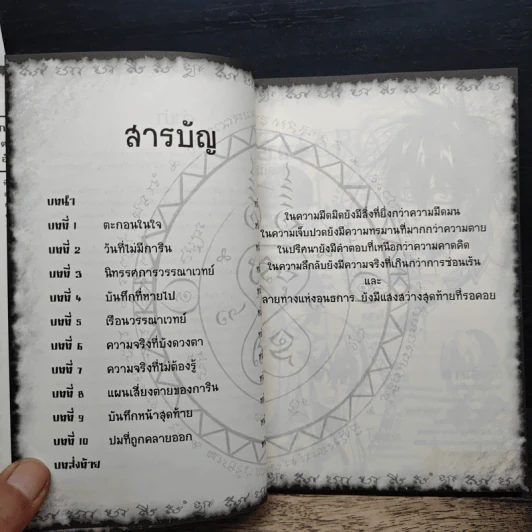 สารบัญ
บทนำ
บทที่ 1 ตะกอนในใจ
บทที่ 2 วันที่ไม่มีการิน
บทที่ 3 นิทรรศการวรรณเวทย์
บทที่ 4 บันทึกที่หายไป
บทที่ 5 เรือนวรรณาเวทย์
บทที่ 6 ความจริงที่บังดวงตา
บทที่ 7 ความจริงที่ไม่ต้องรู้
บทที่ 8 แผนเสี่ยงตายของการิน
บทที่ 9 บันทึกหน้าสุดท้าย
บทที่ 10 ปมที่ถูกคลายออก
บทส่งท้าย
ในความมืดมิดยังมีสิ่งที่ยิ่งกว่าความมืดมน
ในความเจ็บปวดยังมีความทรมานที่มากกว่าความตาย
ในปริศนายังมีคำตอบที่เหนือกว่าความคาดคิด
ในความลึกลับยังมีความจริงที่เกินกว่าการซ่อนเร้น
และ
ลายทางแห่งอนธการ ยังมีแสงสว่างสุดท้ายที่รอคอย